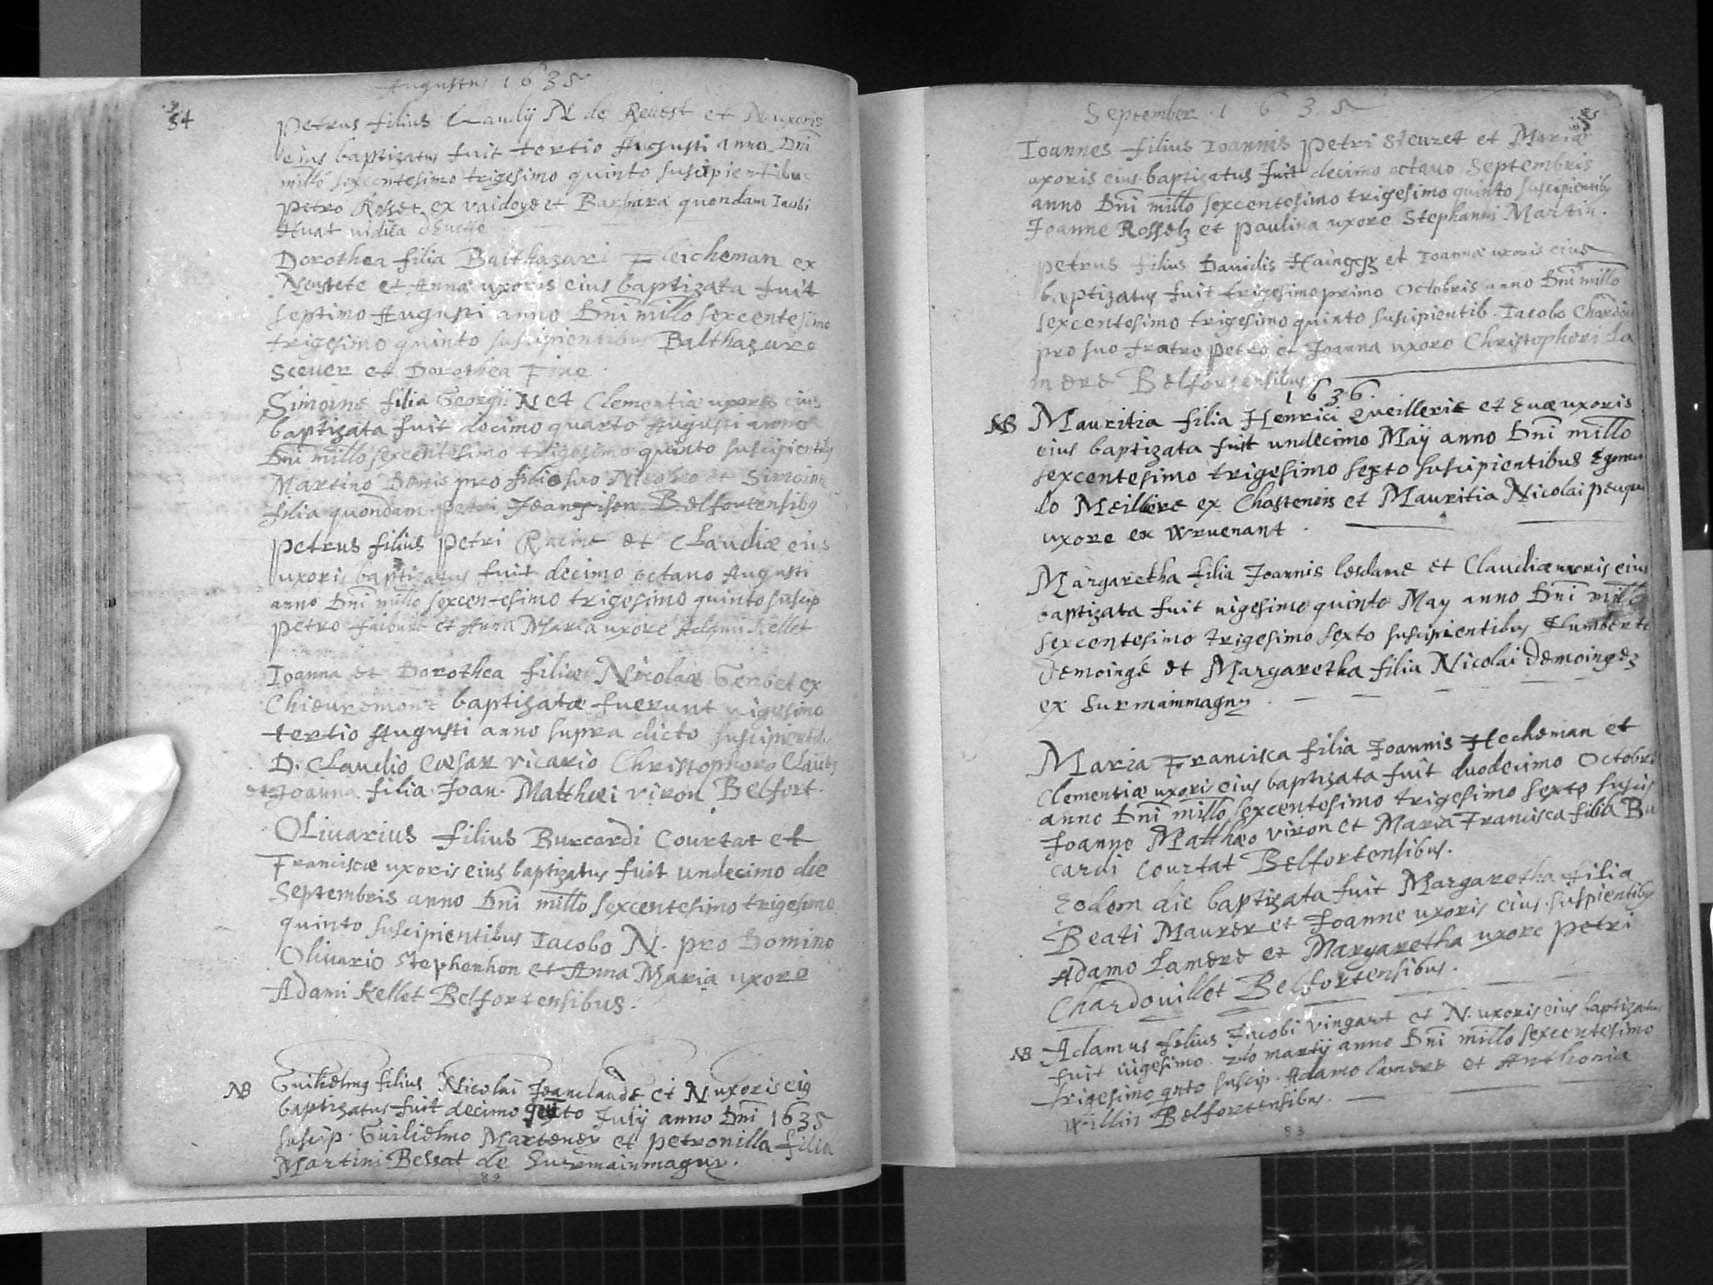 Augustus 1635
54
Petrus filius Claudij N de Reuest et N uxoris
eius baptizatus fuit tertio Augusti anno Dnī
millō sexcentesimo trigesimo quinto suscipientibus
Petro Rosset ex vaidoye et Barbara quondam Iacobi
Huat vidua
Dorothea filia Balthasari Fleicheman ex
Neustete et Annæ uxoris eius baptizata fuit
septimo Augusti anno Dnī millō sexcentesimo
trigesimo quinto suscipientibus Balthazaro
Sceuer et Dorothea Fine
Simoine filia Georgij N et Clementiæ uxoris eius
baptizata fuit decimo quarto Augusti anno
Dnī millō sexcentesimo trigesimo quinto suscipientib9
Martino Denis pro filio suo Nicolao et Simoine
filia quondam petri Belfortensib9
Petrus filius Petri Racine et Claudiæ eius
uxoris baptizatus fuit decimo octauo Augusti
anno Dnī millō sexcentesimo trigesimo quinto suscip
petro et Anna Maria uxore Adami Kellet
Ioanna et Dorothea filiæ Nicolai Gerbet ex
Chieuremont baptizatæ fuerunt vigesimo
tertio Augusti anno supra dicto suscipientib
D. Claudio Cæsar vicario Christophoro
et Joanna filia Joan. Matthæi viron Belfort.
Oliuarius filius Burcardi Courtat et
Franciscæ uxoris eius baptizatus fuit undecimo die
Septembris anno Dnī millō sexcentesimo trigesimo
quinto suscipientibus Iacobo N. pro Domino
Oliuario Stephenhon et Anna Maria uxore
Adami Kellet Belfortensibus.
NB Guilielm9 filius Nicolai Joanclaude et N uxoris ei9
baptizatus fuit decimo Julij anno Dnī 1635
suscip. Guilielmo Martener et petronilla filia
Martini Bessat de Surmainmagny.
82
September 1635
Ioannes filius Ioannis Petri Steuret et Maria
uxoris eius baptizatus fuit decimo octauo Septembris
anno Dnī millō sexcentesimo trigesimo quinto suscipientib9
Joanne Rosselz et Paulina uxore Stephanni Martin.
Petrus filius Dauidis et Ioannæ uxoris eius
baptizatus fuit trigesimo primo Octobris anno Dnī millō
sexcentesimo trigesimo quinto suscipientib. Iacobo
pro suo fratre Petro et Joanna uxore Christophori La
mere Belfortensibus
1636.
NB Mauritia filia Henrici Queillerie et Euæ uxoris
eius baptizata fuit undecimo Maÿ anno Dnī millō
sexcentesimo trigesimo sexto suscipientibus
do Meillere ex Chastenois et Mauritia Nicolai
uxore ex Wruenant.
Margaretha filia Joannis lesdame et Claudiæ uxoris eius
baptizata fuit uigesimo quinto May anno Dnī millō
sexcentesimo trigesimo sexto suscipientibus
Demoinge et Margaretha filia Nicolai Demoingez
ex Surmainmagny.
Maria Francisca filia Joannis Hecheman et
Clementiæ uxori eius baptizata fuit duodecimo Octobri
anno Dnī millō sexcentesimo trigesimo sexto suscip
Joanne Matthæo viron et Maria Francisca filia Bu
cardi Courtat Belfortensibus.
Eodem die baptizata fuit Margaretha filia
Beati Maurer et Joanne uxoris eius suscipientib9
Adamo Lamere et Margaretha uxore Petri
Chardouillet Belfortensibus.
NB Adamus filius Jacobi Vingart et N. uxoris eius baptizatus
fuit uigesimo martij anno Dnī millō sexcentesimo
trigesimo qnto suscip. Adamo Lamere et Anthonia
Willin Belfortensibus.
83